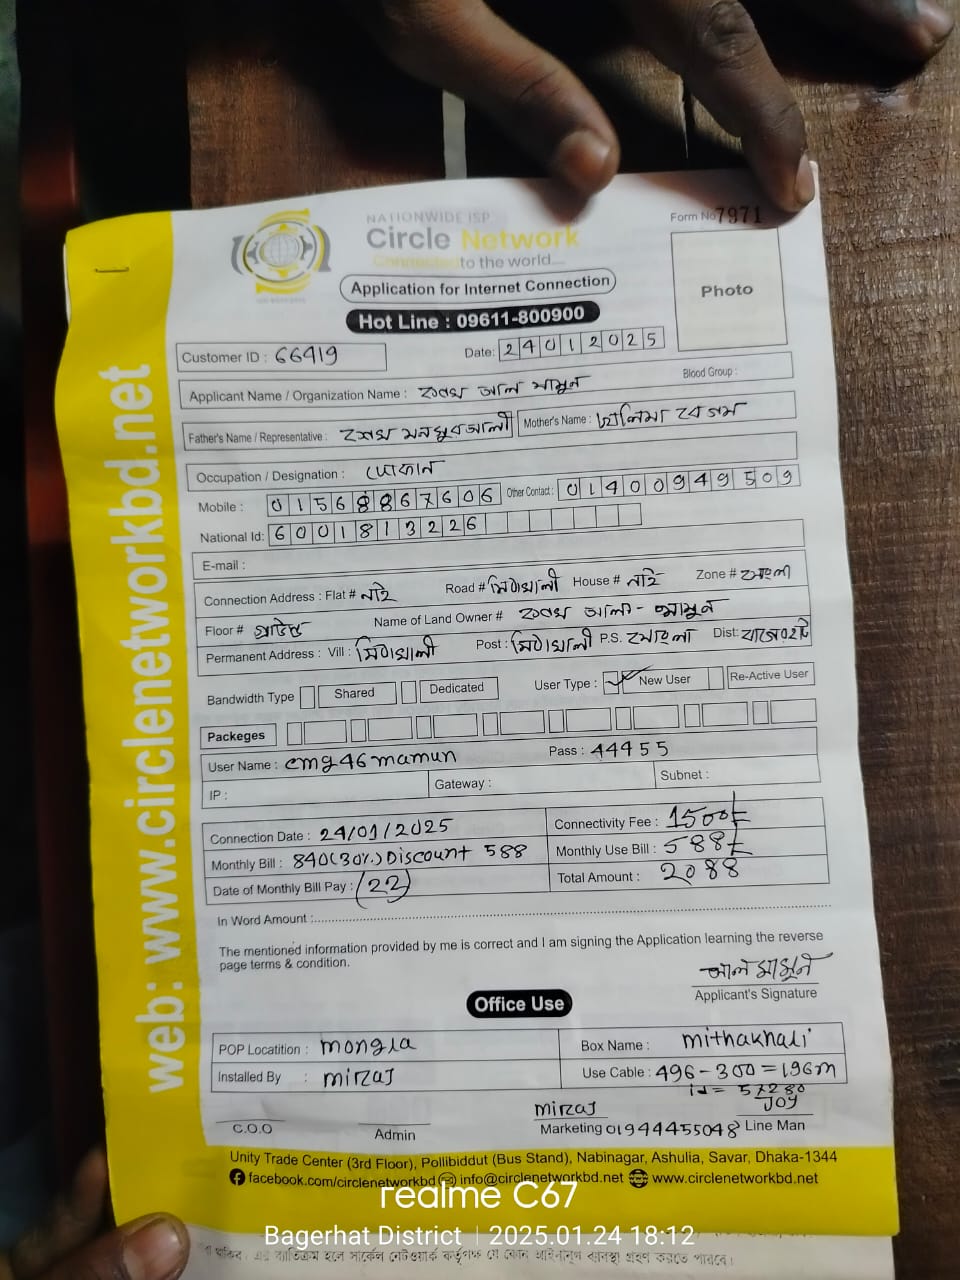 Form No 7971
NATIONWIDE ISP
Circle Network
Connected to the world...
Application for Internet Connection
Photo
Hot Line : 09611-800900
Customer ID : 66419
Date: 24012025
Applicant Name / Organization Name : শেখ আল মামুন
Blood Group :
Father's Name / Representative : শেখ মনসুর আলী
Mother's Name : হালিমা বেগম
Occupation / Designation : দোকান
Mobile : 01568867606
Other Contact : 01400949509
National Id: 6001813226
E-mail :
Connection Address : Flat # নাই Road # মিঠাখালী House # নাই Zone # মোংলা
Floor # গ্রাউন্ড Name of Land Owner # শেখ আল- মামুন
Permanent Address : Vill : মিঠাখালী Post : মিঠাখালী P.S. মোংলা Dist: বাগেরহাট
Bandwidth Type Shared Dedicated User Type : New User Re-Active User
Packeges
User Name : cmg46mamun Pass : 44455
IP : Gateway : Subnet :
Connection Date : 24/01/2025
Connectivity Fee : 1500/-
Monthly Bill : 840(30%) Discount 588
Monthly Use Bill : 588/-
Date of Monthly Bill Pay : (22)
Total Amount : 2088
In Word Amount :
The mentioned information provided by me is correct and I am signing the Application learning the reverse
page terms & condition.
আল মামুন
Applicant's Signature
Office Use
POP Locatition : mongla
Box Name : mithakhali
Installed By : mirzaj
Use Cable : 496-300=196m
id= 57280
mirzaj JOY
C.O.O Admin Marketing 01944455048 Line Man
Unity Trade Center (3rd Floor), Pollibiddut (Bus Stand), Nabinagar, Ashulia, Savar, Dhaka-1344
facebook.com/circlenetworkbd info@circlenetworkbd.net www.circlenetworkbd.net
web: www.circlenetworkbd.net
realme C67
Bagerhat District 2025.01.24 18:12
এর ব্যতিক্রম হলে সার্কেল নেটওয়ার্ক কর্তৃপক্ষ যে কোন আইনানুগ ব্যবস্থা গ্রহণ করতে পারবে।